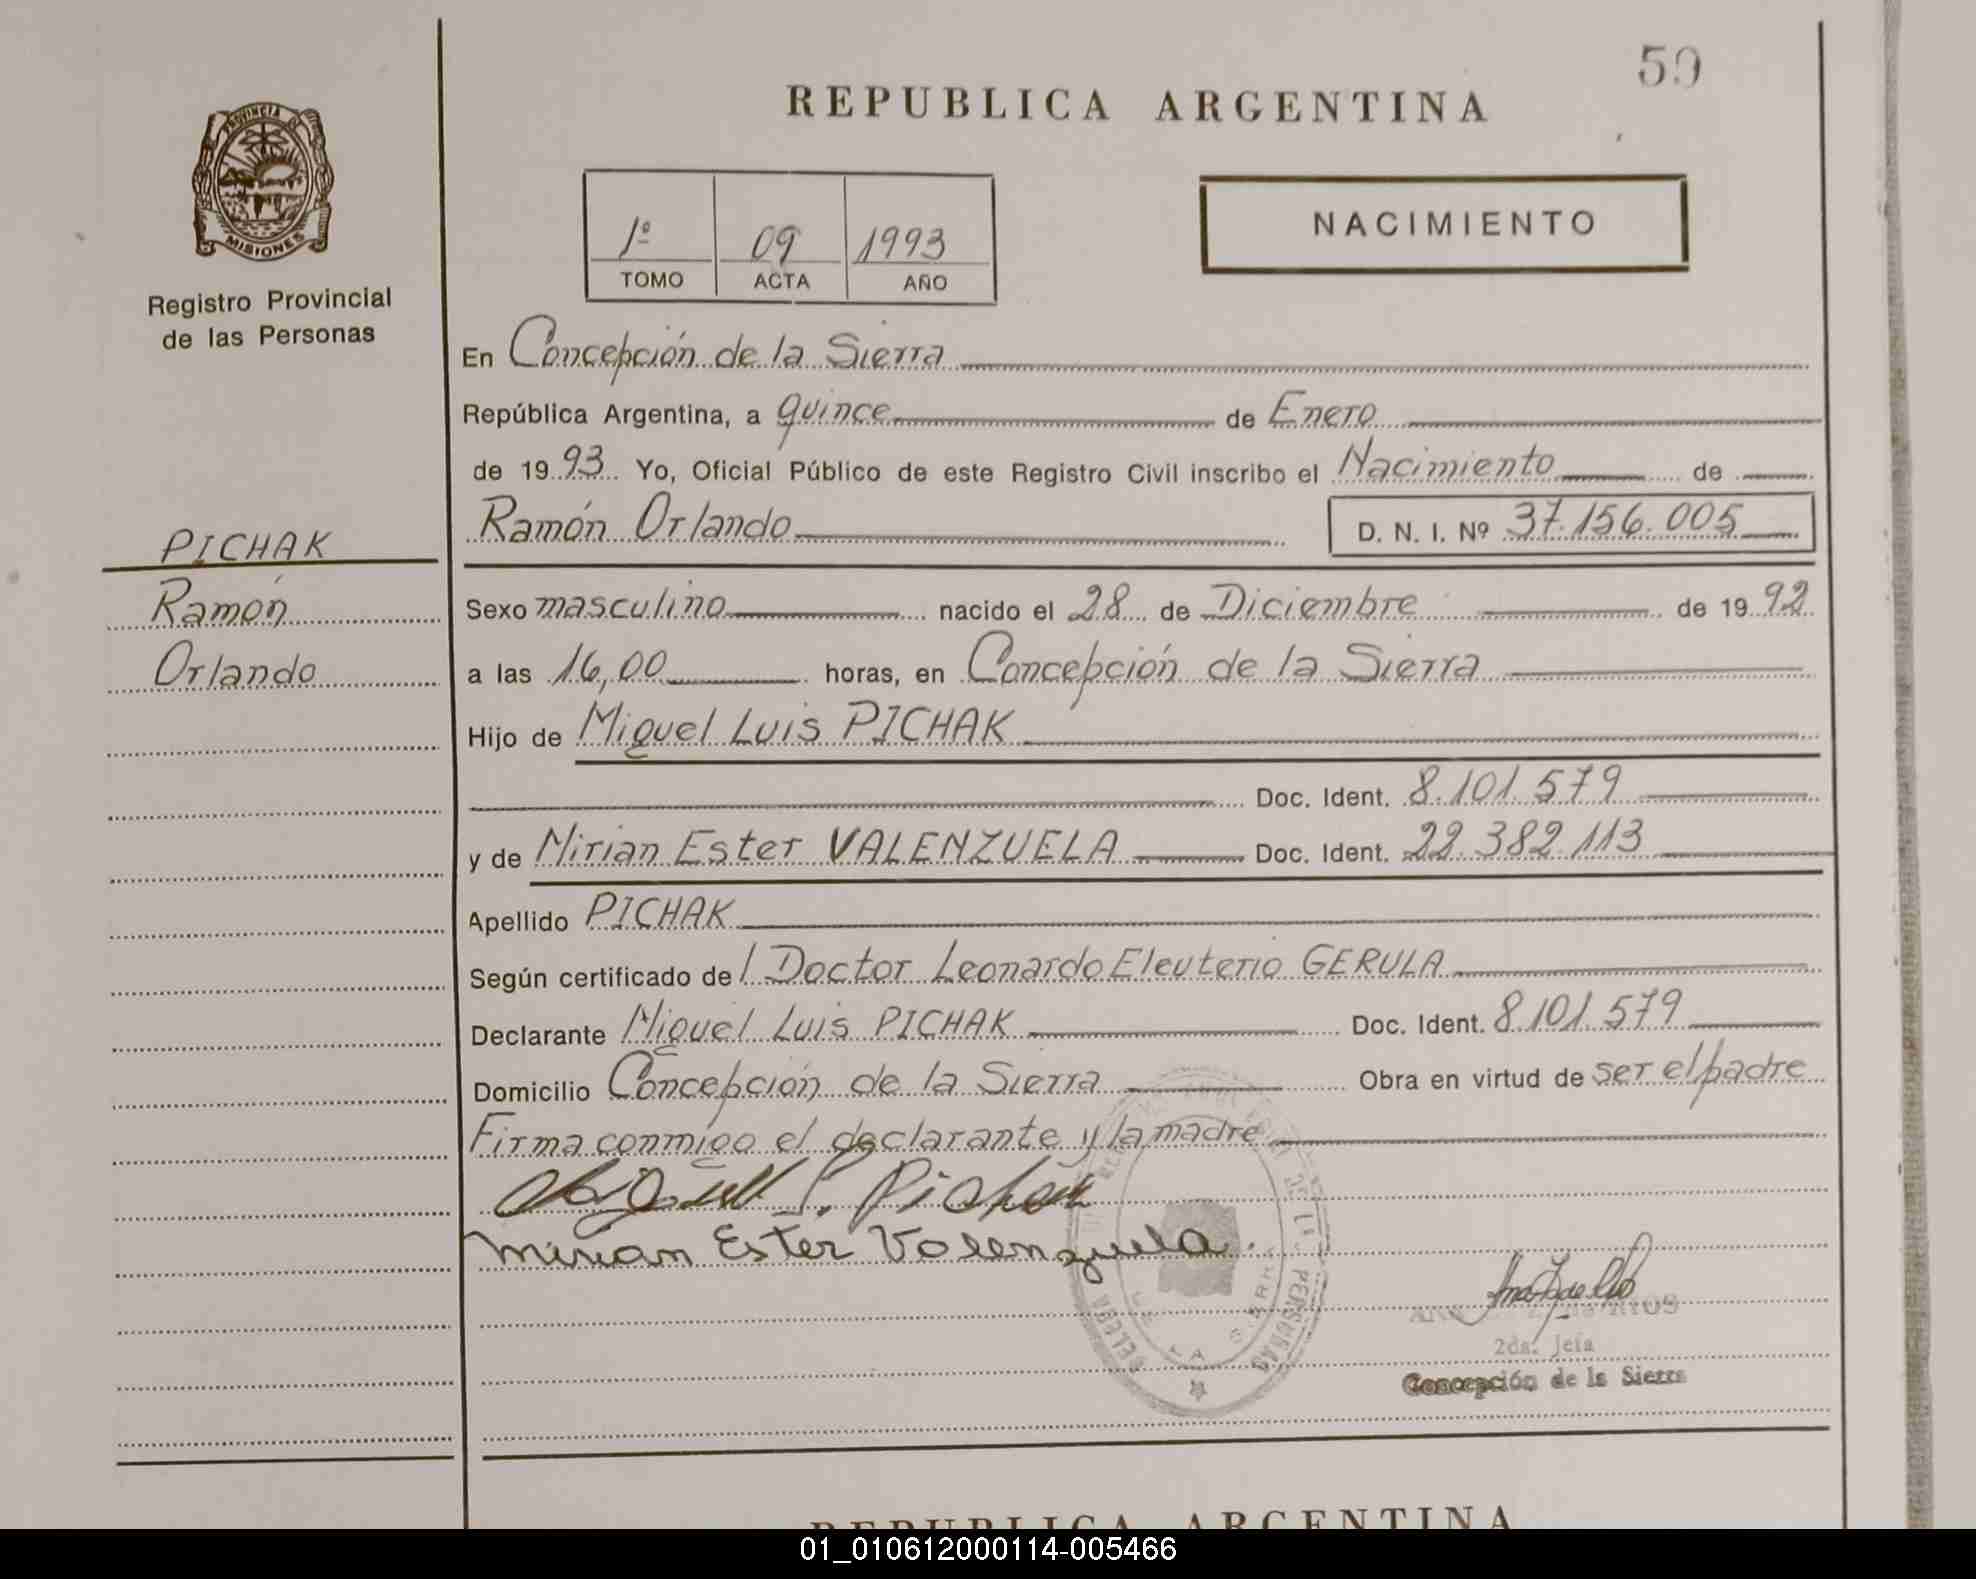 59
REPUBLICA ARGENTINA
PROVINCIA DE
MISIONES
Registro Provincial
de las Personas
1º 09 1993
TOMO ACTA AÑO
NACIMIENTO
En Concepción de la Sierra
República Argentina, a quince de Enero
de 1993 Yo, Oficial Público de este Registro Civil inscribo el Nacimiento de
Ramón Orlando D. N. I. Nº 37.156.005
PICHAK
Ramón
Orlando
Sexo masculino nacido el 28 de Diciembre de 1992
a las 16,00 horas, en Concepción de la Sierra
Hijo de Miguel Luis PICHAK
Doc. Ident. 8.101.579
y de Mirian Ester VALENZUELA Doc. Ident. 22.382.113
Apellido PICHAK
Según certificado del Doctor Leonardo Eleuterio GERULA
Declarante Miguel Luis PICHAK Doc. Ident. 8.101.579
Domicilio Concepción de la Sierra Obra en virtud de ser el padre
Firma conmigo el declarante y la madre
L. Pichak
Mirian Ester Valenzuela.
2da. Jefa
Concepción de la Sierra
REPUBLICA ARGENTINA
01_010612000114-005466